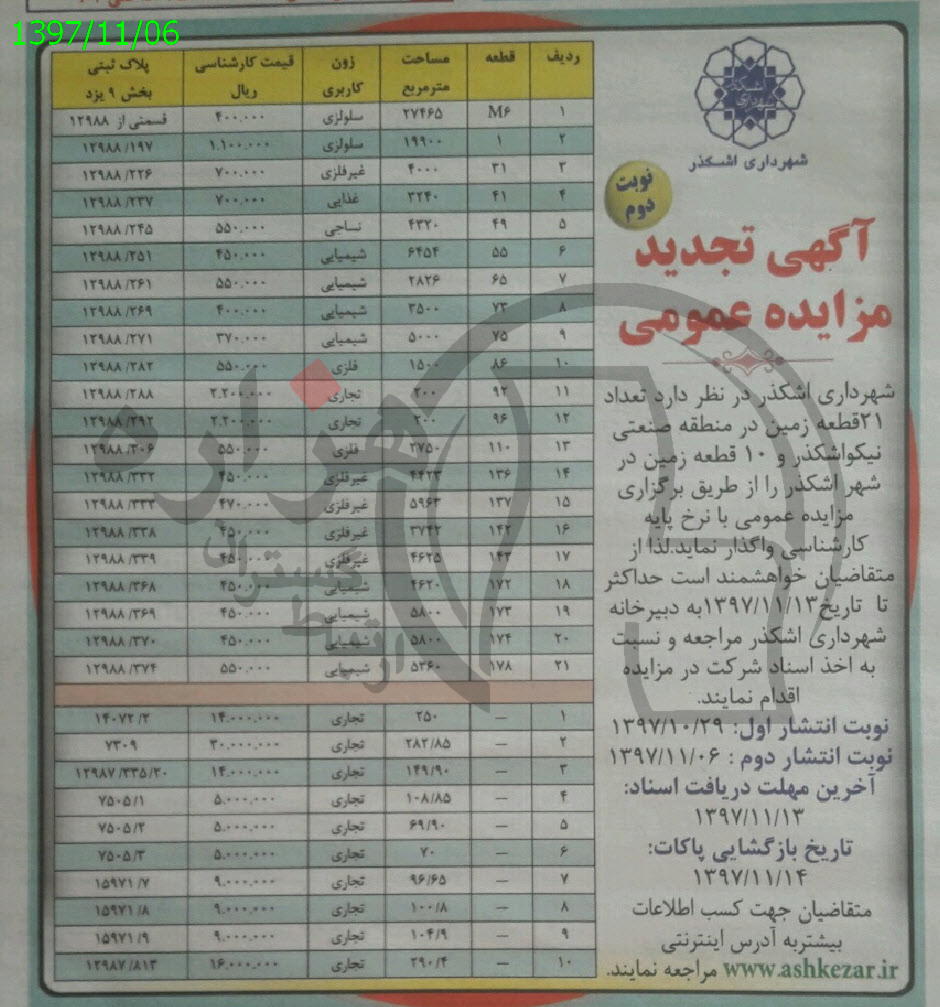 1397/11/06
شهرداری اشکذر
نوبت
دوم
آگهی تجدید
مزایده عمومی
شهرداری اشکذر در نظر دارد تعداد
۲۱قطعه زمین در منطقه صنعتی
نیکواشکذر و ۱۰ قطعه زمین در
شهر اشکذر را از طریق برگزاری
مزایده عمومی با نرخ پایه
کارشناسی واگذار نماید.لذا از
متقاضیان خواهشمند است حداکثر
تا تاریخ۱۳۹۷/۱۱/۱۳به دبیرخانه
شهرداری اشکذر مراجعه و نسبت
به اخذ اسناد شرکت در مزایده
اقدام نمایند.
نوبت انتشار اول: ۱۳۹۷/۱۰/۲۹
نوبت انتشار دوم : ۱۳۹۷/۱۱/۰۶
آخرین مهلت دریافت اسناد:
۱۳۹۷/۱۱/۱۳
تاریخ بازگشایی پاکات:
۱۳۹۷/۱۱/۱۴
متقاضیان جهت کسب اطلاعات
بیشتربه آدرس اینترنتی
www.ashkezar.ir مراجعه نمایند.
ردیف قطعه مساحت مترمربع زون کاربری قیمت کارشناسی ریال پلاک ثبتی بخش ۹ یزد
۱ M۶ ۲۷۴۶۵ سلولزی ۴۰۰.۰۰۰ قسمتی از ۱۲۹۸۸
۲ ۱ ۱۹۹۰۰ سلولزی ۱.۱۰۰.۰۰۰ ۱۲۹۸۸/۱۹۷
۳ ۳۱ ۴۰۰۰ غیرفلزی ۷۰۰.۰۰۰ ۱۲۹۸۸/۲۲۶
۴ ۴۱ ۳۲۴۰ غذایی ۷۰۰.۰۰۰ ۱۲۹۸۸/۲۳۷
۵ ۴۹ ۴۳۲۰ نساجی ۵۵۰.۰۰۰ ۱۲۹۸۸/۲۴۵
۶ ۵۵ ۶۴۵۴ شیمیایی ۴۵۰.۰۰۰ ۱۲۹۸۸/۲۵۱
۷ ۶۵ ۲۸۲۶ شیمیایی ۵۵۰.۰۰۰ ۱۲۹۸۸/۲۶۱
۸ ۷۳ ۳۵۰۰ شیمیایی ۴۰۰.۰۰۰ ۱۲۹۸۸/۲۶۹
۹ ۷۵ ۵۰۰۰ شیمیایی ۳۷۰.۰۰۰ ۱۲۹۸۸/۲۷۱
۱۰ ۸۶ ۱۵۰۰ فلزی ۵۵۰.۰۰۰ ۱۲۹۸۸/۲۸۲
۱۱ ۹۲ ۲۰۰ تجاری ۲.۲۰۰.۰۰۰ ۱۲۹۸۸/۲۸۸
۱۲ ۹۶ ۲۰۰ تجاری ۲.۲۰۰.۰۰۰ ۱۲۹۸۸/۲۹۲
۱۳ ۱۱۰ ۲۷۵۰ فلزی ۵۵۰.۰۰۰ ۱۲۹۸۸/۳۰۶
۱۴ ۱۳۶ ۴۴۲۳ غیرفلزی ۴۵۰.۰۰۰ ۱۲۹۸۸/۳۳۲
۱۵ ۱۳۷ ۵۹۶۳ غیرفلزی ۴۷۰.۰۰۰ ۱۲۹۸۸/۳۳۳
۱۶ ۱۴۲ ۳۷۴۲ غیرفلزی ۴۵۰.۰۰۰ ۱۲۹۸۸/۳۳۸
۱۷ ۱۴۳ ۴۶۲۵ غیرفلزی ۴۵۰.۰۰۰ ۱۲۹۸۸/۳۳۹
۱۸ ۱۷۲ ۴۶۲۰ شیمیایی ۴۵۰.۰۰۰ ۱۲۹۸۸/۳۶۸
۱۹ ۱۷۳ ۵۸۰۰ شیمیایی ۴۵۰.۰۰۰ ۱۲۹۸۸/۳۶۹
۲۰ ۱۷۴ ۵۸۰۰ شیمیایی ۴۵۰.۰۰۰ ۱۲۹۸۸/۳۷۰
۲۱ ۱۷۸ ۵۳۶۰ شیمیایی ۵۵۰.۰۰۰ ۱۲۹۸۸/۳۷۴
۱ — ۲۵۰ تجاری ۱۴.۰۰۰.۰۰۰ ۱۴۰۷۲/۳
۲ — ۲۸۲/۸۵ تجاری ۳۰.۰۰۰.۰۰۰ ۷۳۰۹
۳ — ۱۴۹/۹۰ تجاری ۱۴.۰۰۰.۰۰۰ ۱۲۹۸۷/۳۳۵/۳۰
۴ — ۱۰۸/۸۵ تجاری ۵.۰۰۰.۰۰۰ ۷۵۰۵/۱
۵ — ۶۹/۹۰ تجاری ۵.۰۰۰.۰۰۰ ۷۵۰۵/۲
۶ — ۷۰ تجاری ۵.۰۰۰.۰۰۰ ۷۵۰۵/۳
۷ — ۹۶/۶۵ تجاری ۹.۰۰۰.۰۰۰ ۱۵۹۷۱/۷
۸ — ۱۰۰/۸ تجاری ۹.۰۰۰.۰۰۰ ۱۵۹۷۱/۸
۹ — ۱۰۴/۹ تجاری ۹.۰۰۰.۰۰۰ ۱۵۹۷۱/۹
۱۰ — ۲۹۰/۴ تجاری ۱۶.۰۰۰.۰۰۰ ۱۲۹۸۷/۸۱۳
هزاره
گستری
ارتباط